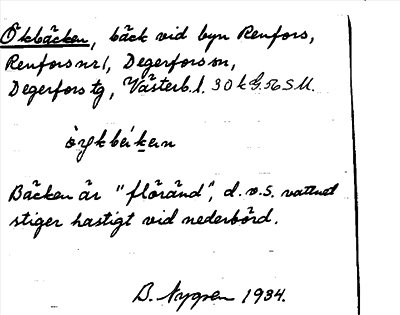 Ökbäcken, bäck vid byn Renfors,
Renfors nr 1, Degerfors sn,
Degerfors tg, Västerb. l. 30 k G. 56 S M.
Bäcken är "flöränd", d. v. s. vattnet
stiger hastigt vid nederbörd.
B. Nygren 1934.